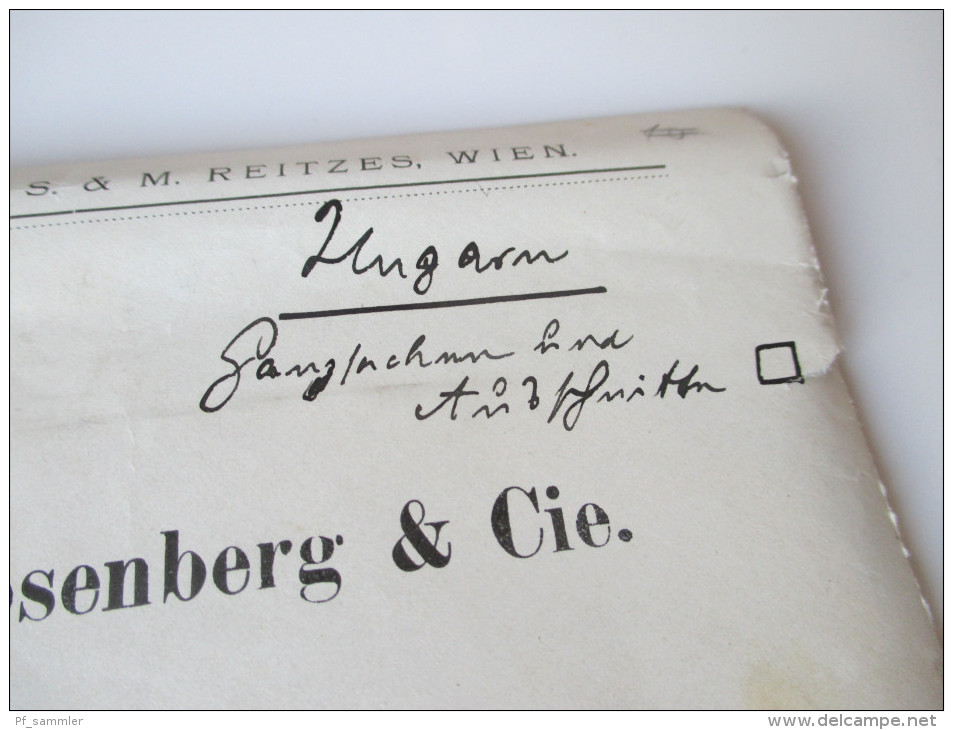 S. & M. REITZES, WIEN.
Ungarn
Ganzsachen und
Ausschnitte
senberg & Cie.
Pf_sammler
www.delcampe.net